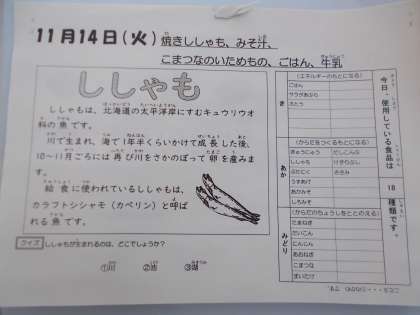 11月14日(火) 焼きししゃも、みそ汁、
こまつなのいためもの、ごはん、牛乳
ししゃも
ししゃもは、北海道の太平洋岸にすむキュウリウオ
科の魚です。
川で生まれ、海で1年半くらいかけて成長した後、
10～11月ごろには再び川をさかのぼって卵を産みま
す。
給食に使われているししゃもは、
カラフトシシャモ（カペリン）と呼ば
れる魚です。
クイズ ししゃもが生まれるのは、どこでしょうか？
①川 ②池 ③湖
今日、使用している食品は
18
種類です。
き
(エネルギーのもとになる)
ごはん
サラダあぶら
さとう
あか
(からだをつくるもとになる)
ぎゅうにゅう だしこんぶ
ししゃも けずりぶし
ぶたにく
うすあげ
あかみそ
しろみそ
みどり
(からだのちょうしをととのえる)
たまねぎ
だいこん
にんじん
あおねぎ
こまつな
まいたけ